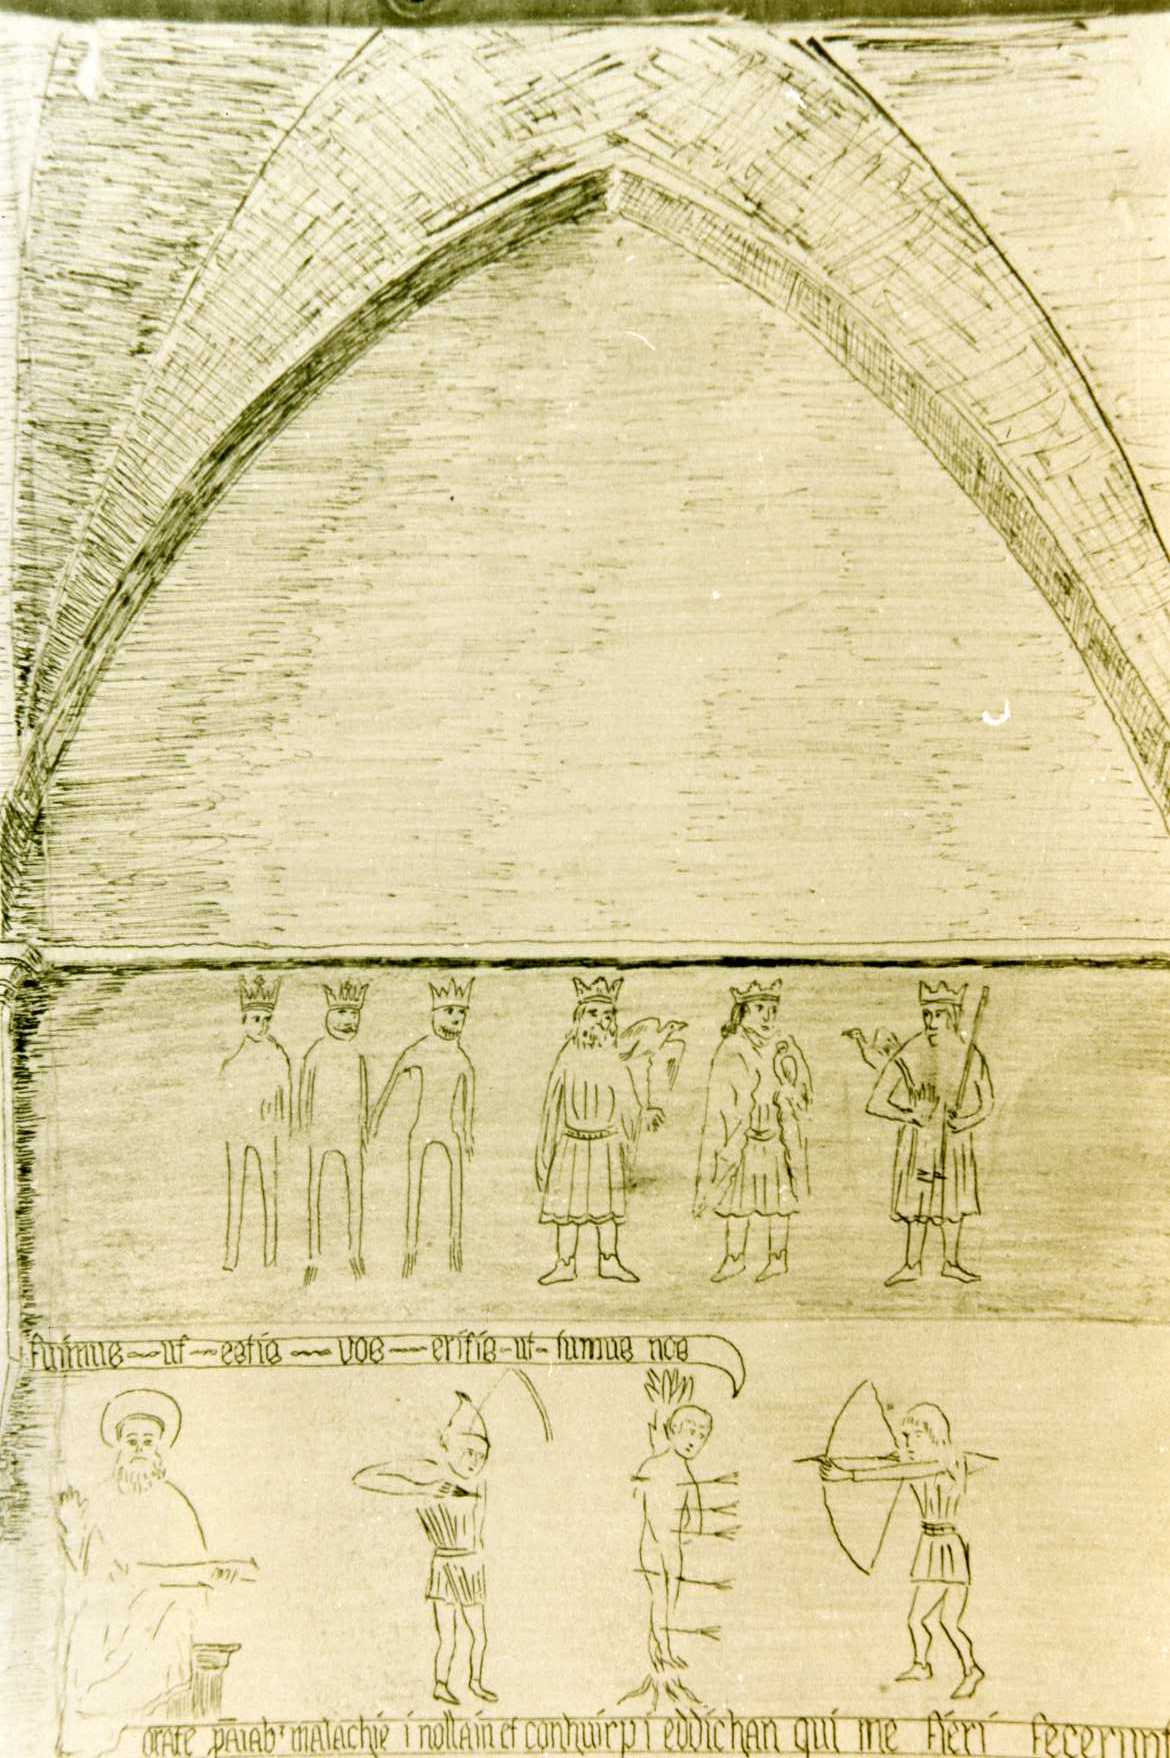 fuimus ut estis vos eritis ut sumus nos
orate malachie i nollain et conhuir i eddichan qui me fieri fecerunt